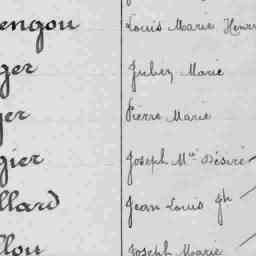 engou Louis Marie Henri
ger Juber Marie
ger Pierre Marie
gier Joseph Mie Désiré
llard Jean Louis Jh
llou Joseph Marie